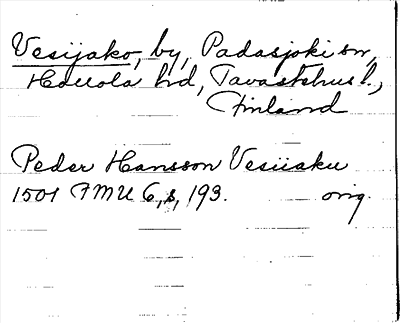 Vesijako, by, Padasjoki sn,
Hollola hd, Tavastehus l.,
Finland
Peder Hansson Vesiiaku
1501 FMU 6, s, 193. orig.